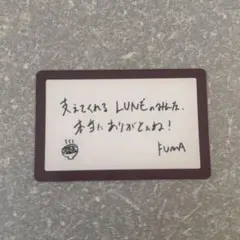 支えてくれる LUNÉのみんな、
本当にありがとうね!
FUMA